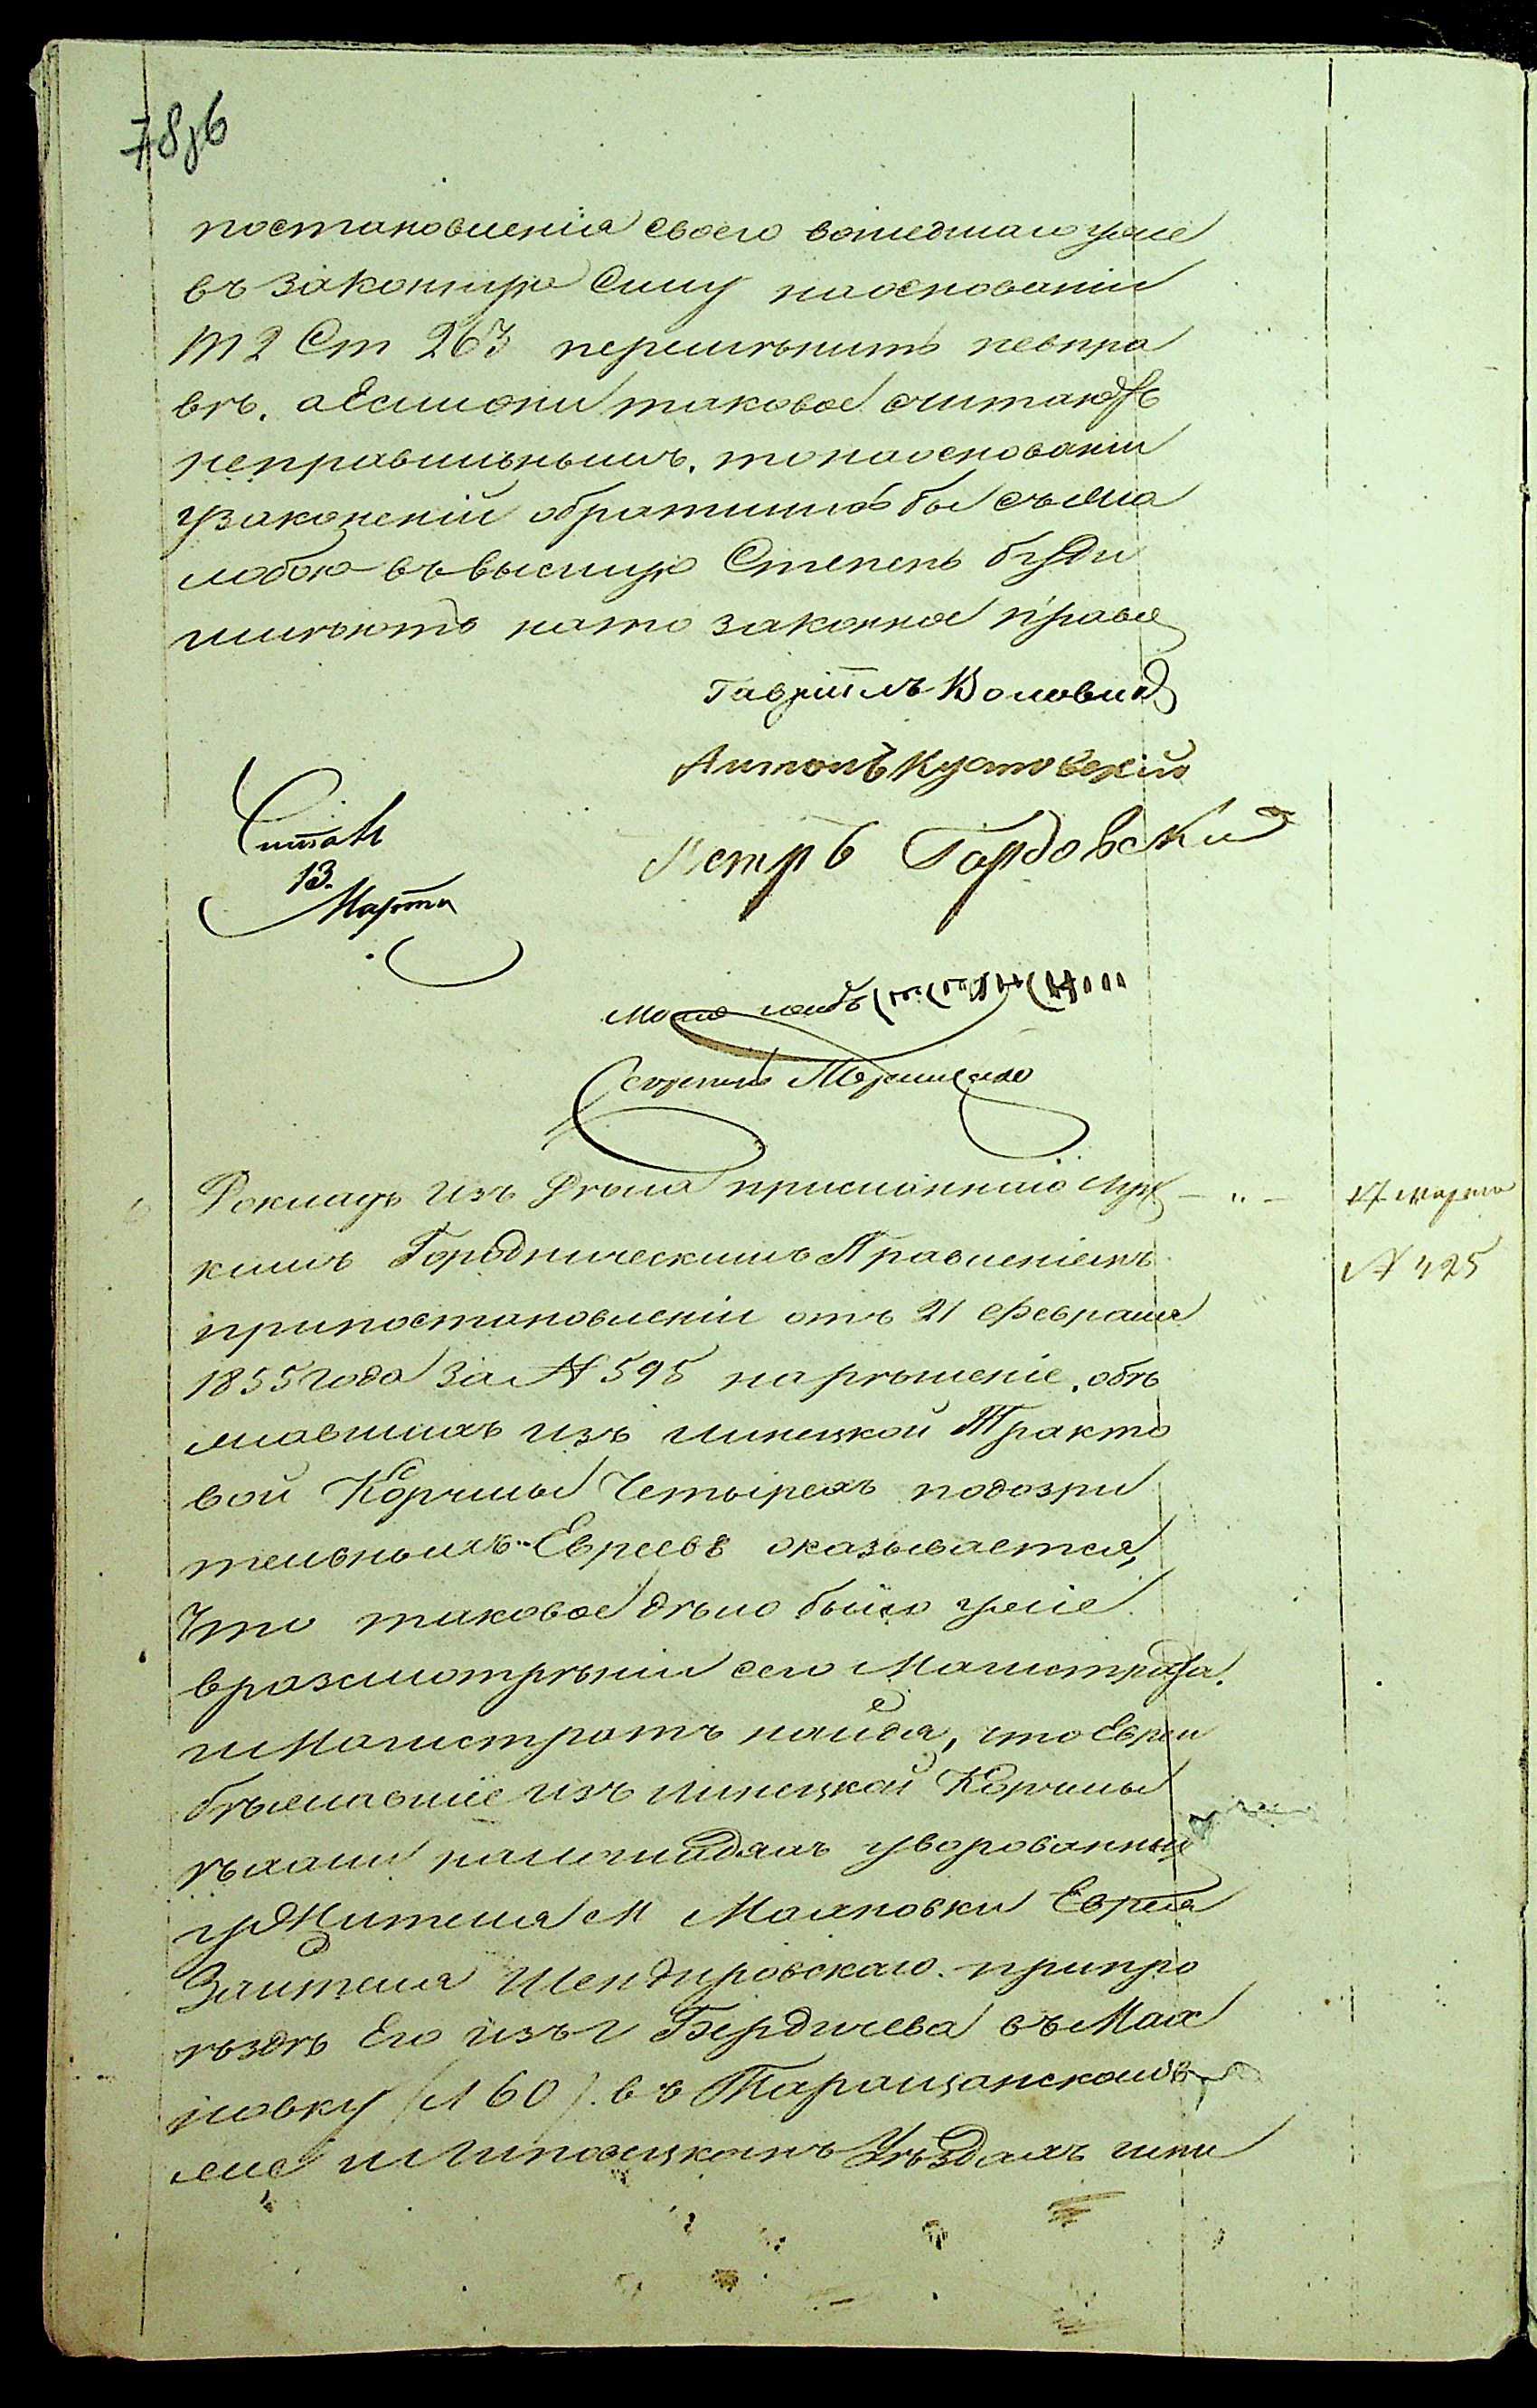 78 об
постановленія своего вошедшаго уже
въ законную Силу наосновании
т 2 Ст 263 перемѣнить невпра
вѣ. аЕслиони таковое считаютъ
неправильнымъ. то наоснованіи
узаконеній обратилисьбы съ жа
лобою въ высшую Степень буди
имѣютъ нато законное право
Гавріилъ
Антонъ Кустовскій
Петръ Гордовский
Читалъ
13.
Марта
Докладъ изъ Дѣла присланнаго
кимъ Городническимъ Правленіемъ
припостановленіи отъ 21 февраля
1855 года За № 595 на рѣшеніе, объ
жавшихъ изъ линецкой Тракто
вой Корчмы Четырехъ подозри
тельныхъ Евреевъ оказывается,
Что таковое дѣло было уже
вразсмотрѣніи сего Магистрата.
и Магистратъ найдя, что Евреи
бѣжавшіе изъ линецкой Корчмы
ѣхали налошадяхъ уворованныхъ
уЖителя М Махновки Еврея
Зейтеля Шендеровскаго. припро
ѣздѣ Его изъ г Бердичева въ Мах
новку (л 60). въ Таращанскомъ
же и Липовецкомъ Уѣздахъ ими
17 марта
№ 425